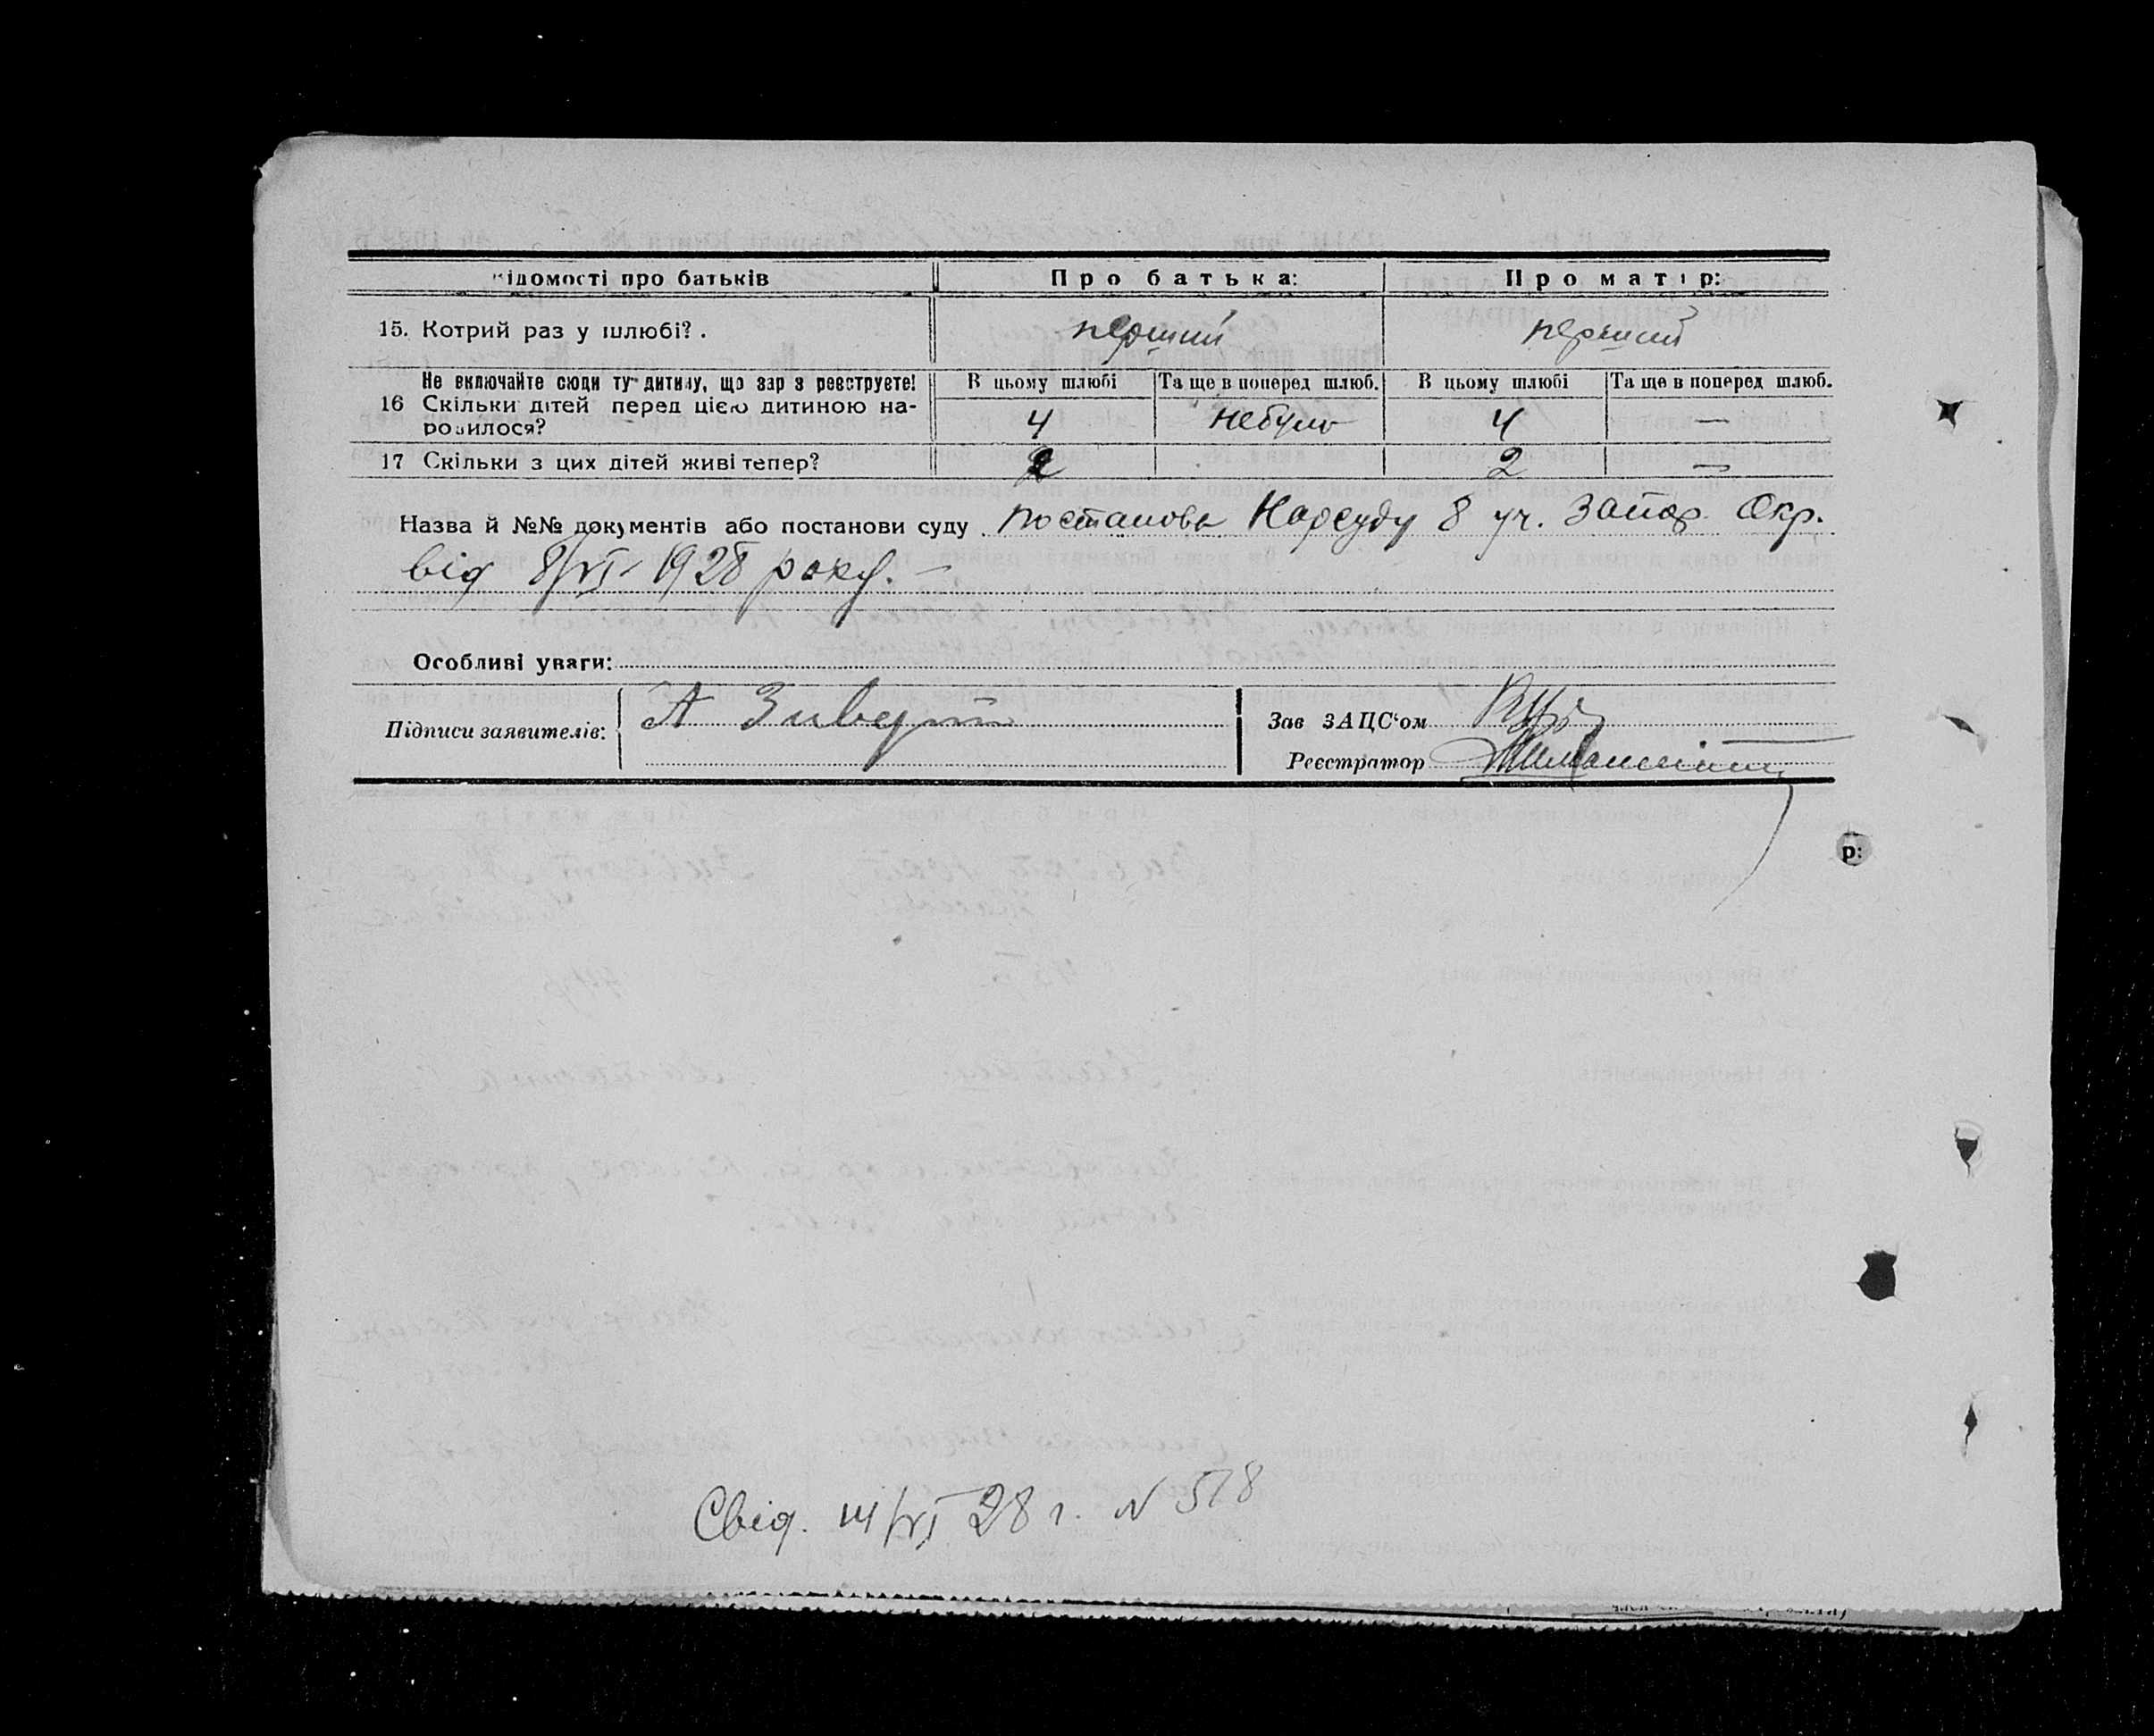 ідомості про батьків Про батька: Про матір:
15. Котрий раз у шлюбі? . перший перший
Не включайте сюди ту дитину, що зареєструєте! В цьому шлюбі Та ще в поперед шлюб. В цьому шлюбі Та ще в поперед шлюб.
16 Скільки дітей перед цією дитиною на-
родилося? 4 небуло 4 —
17 Скільки з цих дітей живі тепер? 2 2 —
Назва й №№ документів або постанови суду постанова Нарсуду 8 уч. Запор. Окр.
від 8/VI-1928 року. —
Особливі уваги:
Підписи заявителів: А Зиверт Зав ЗАЦС‘ом
Реєстратор
р:
Свід. 14/VI 28 г. N 518